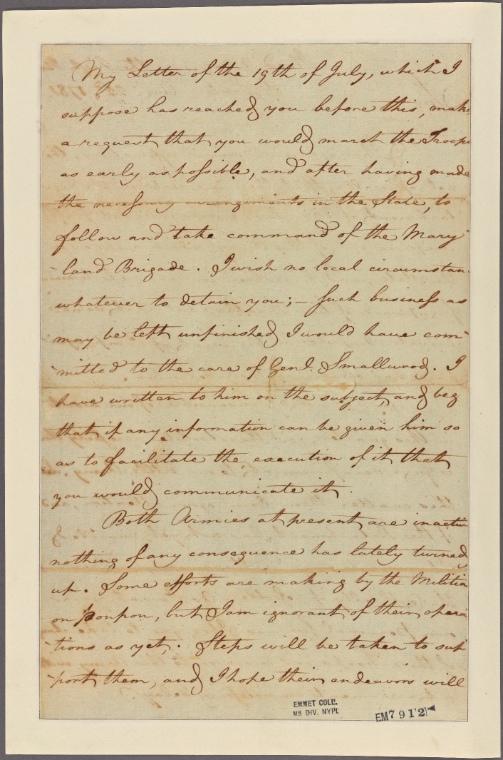 My Letter of the 19th of July, which I
suppose has reached you before this, make
a request that you would march the Troops
as early as possible, and after having made
the necessary arrangements in the State, to
follow and take command of the Mary
land Brigade. I wish no local circumstan
whatever to detain you; – Such business as
may be left unfinished I would have com-
mitted to the care of Genl. Smallwood. I
have written to him on the subject, and beg
that if any information can be given him so
as to facilitate the execution of it that
you would communicate it
Both Armies at present are inactive
nothing of any consequence has lately turned
up. Some efforts are making by the Militia
on ponpon, but I am ignorant of their opera
tions as yet. Steps will be taken to sup
port them, and I hope their endeavors will
EMMET COLL.
MS DIV. NYPL
EM7912